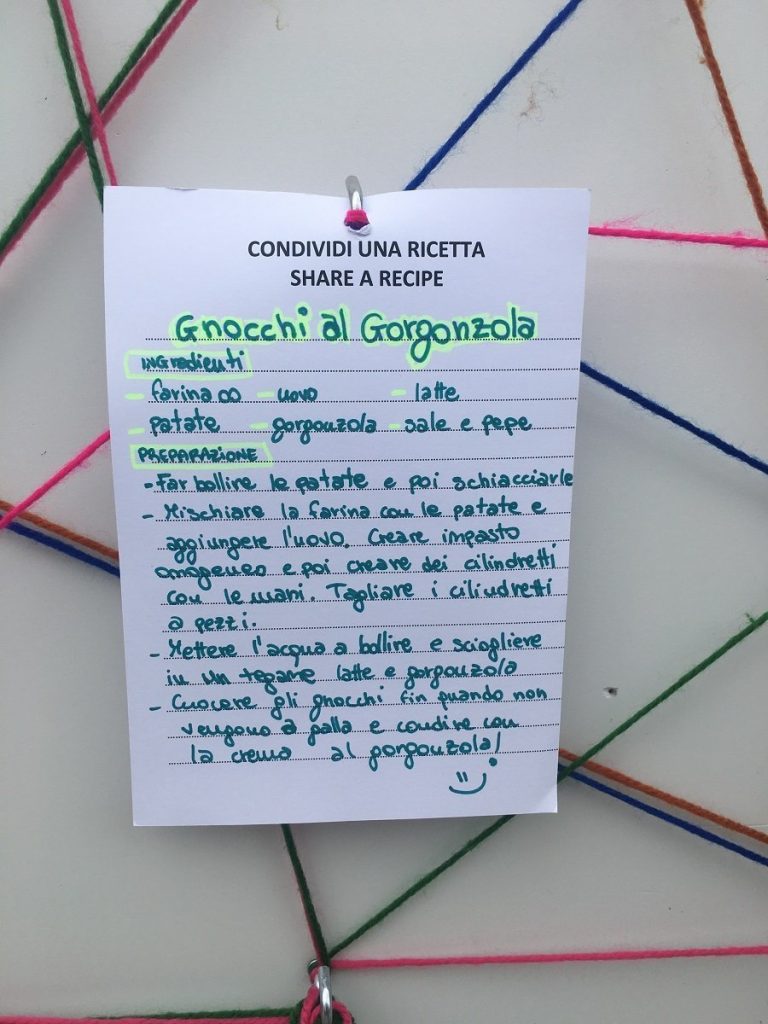 CONDIVIDI UNA RICETTA
SHARE A RECIPE
Gnocchi al Gorgonzola
INGredienti
- farina 00 - uovo - latte
- patate - gorgonzola - sale e pepe
PREPARAZIONE
- Far bollire le patate e poi schiacciarle
- Mischiare la farina con le patate e
aggiungere l'uovo. Creare impasto
omogeneo e poi creare dei cilindretti
con le mani. Tagliare i cilindretti
a pezzi.
- Mettere l'acqua a bollire e sciogliere
in un tegame latte e gorgonzola
- Cuocere gli gnocchi fin quando non
vengono a galla e condire con
la crema al gorgonzola!